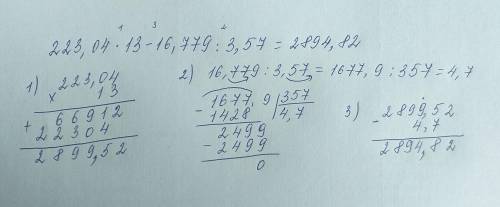 1 3 2
223,04 · 13 - 16,779 : 3,57 = 2894,82
1)
223,04
× 13
+ 66912
22304
2899,52
2) 16,779 : 3,57 = 1677,9 : 357 = 4,7
1677,9 357
- 1428 4,7
2499
- 2499
0
3)
- 2899,52
4,7
2894,82